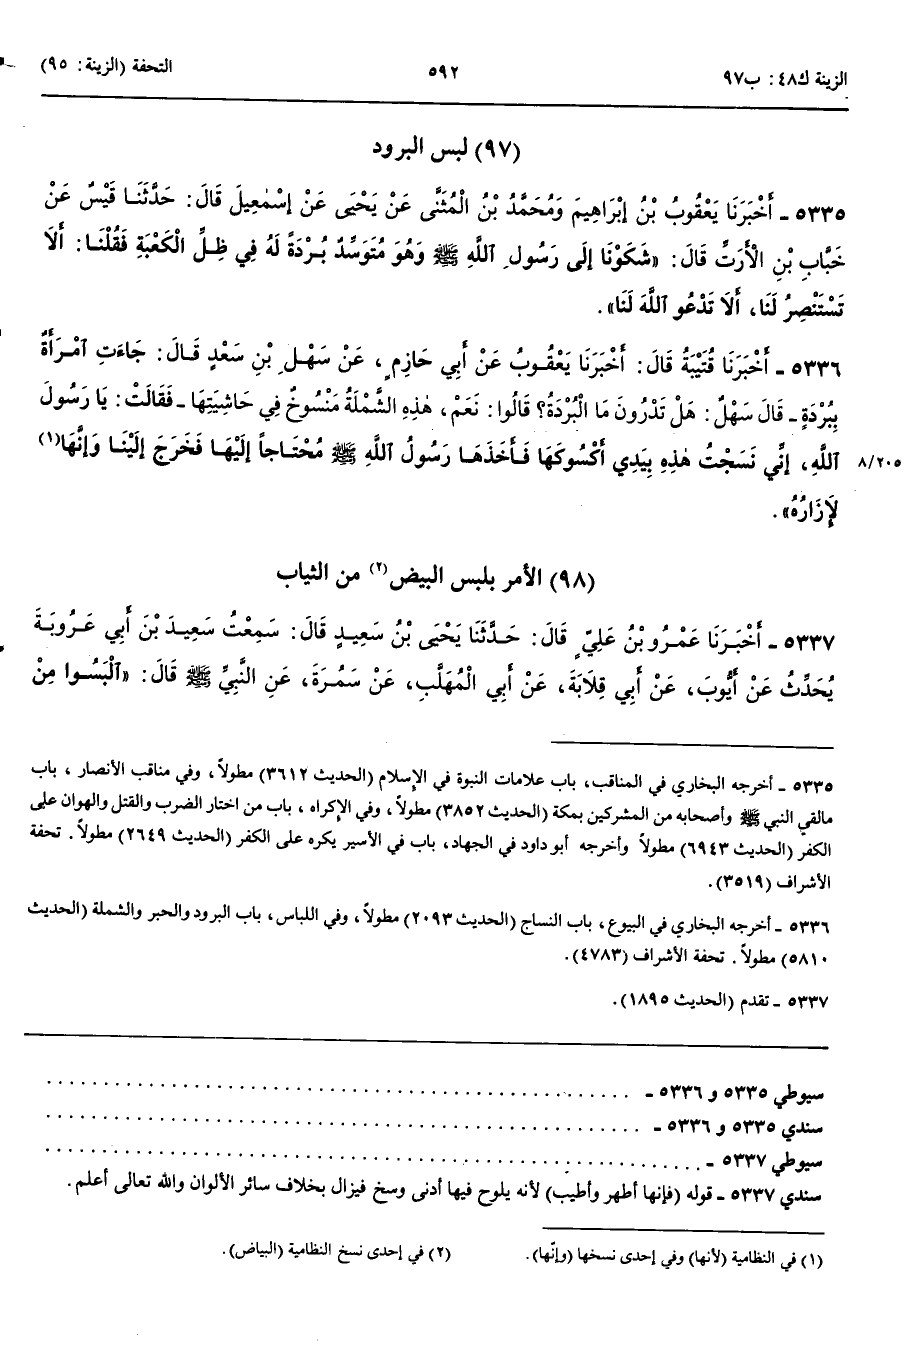 الزينة ك٤٨: ب٩٧ ٥٩٢ التحفة (الزينة: ٩٥)
(٩٧) لبس البرود
٥٣٣٥ ـ أَخْبَرَنَا يَعْقُوبُ بْنُ إِبْرَاهِيمَ وَمُحَمَّدُ بْنُ الْمُثَنَّى عَنْ يَحْيَى عَنْ إِسْمٰعِيلَ قَالَ: حَدَّثَنَا قَيْسٌ عَنْ
خَبَّابِ بْنِ الْأَرَتِّ قَالَ: «شَكَوْنَا إِلَى رَسُولِ ٱللَّهِ ﷺ وَهُوَ مُتَوَسِّدٌ بُرْدَةً لَهُ فِي ظِلِّ الْكَعْبَةِ فَقُلْنَا: أَلَا
تَسْتَنْصِرُ لَنَا، أَلَا تَدْعُو ٱللَّهَ لَنَا».
٥٣٣٦ ـ أَخْبَرَنَا قُتَيْبَةُ قَالَ: أَخْبَرَنَا يَعْقُوبُ عَنْ أَبِي حَازِمٍ، عَنْ سَهْلِ بْنِ سَعْدٍ قَالَ: جَاءَتِ ٱمْرَأَةٌ
بِبُرْدَةٍ ـ قَالَ سَهْلٌ: هَلْ تَدْرُونَ مَا الْبُرْدَةُ؟ قَالُوا: نَعَمْ، هٰذِهِ الشَّمْلَةُ مَنْسُوجٌ فِي حَاشِيَتِهَا ـ فَقَالَتْ: يَا رَسُولَ
ٱللَّهِ، إِنِّي نَسَجْتُ هٰذِهِ بِيَدِي أَكْسُوكَهَا فَأَخَذَهَا رَسُولُ ٱللَّهِ ﷺ مُحْتَاجاً إِلَيْهَا فَخَرَجَ إِلَيْنَا وَإِنَّهَا(١) ٨/٢٠٥
لَإِزَارُهُ».
(٩٨) الأمر بلبس البيض(٢) من الثياب
٥٣٣٧ ـ أَخْبَرَنَا عَمْرُو بْنُ عَلِيٍّ قَالَ: حَدَّثَنَا يَحْيَى بْنُ سَعِيدٍ قَالَ: سَمِعْتُ سَعِيدَ بْنَ أَبِي عَرُوبَةَ
يُحَدِّثُ عَنْ أَيُّوبَ، عَنْ أَبِي قِلَابَةَ، عَنْ أَبِي الْمُهَلَّبِ، عَنْ سَمُرَةَ، عَنِ النَّبِيِّ ﷺ قَالَ: «ٱلْبَسُوا مِنْ
٥٣٣٥ ـ أخرجه البخاري في المناقب، باب علامات النبوة في الإسلام (الحديث ٣٦١٢) مطولاً، وفي مناقب الأنصار، باب
مالقي النبي ﷺ وأصحابه من المشركين بمكة (الحديث ٣٨٥٢) مطولاً، وفي الإكراه، باب من اختار الضرب والقتل والهوان على
الكفر (الحديث ٦٩٤٣) مطولاً وأخرجه أبو داود في الجهاد، باب في الأسير يكره على الكفر (الحديث ٢٦٤٩) مطولاً. تحفة
الأشراف (٣٥١٩).
٥٣٣٦ ـ أخرجه البخاري في البيوع، باب النساج (الحديث ٢٠٩٣) مطولاً، وفي اللباس، باب البرود والحبر والشملة (الحديث
٥٨١٠) مطولاً. تحفة الأشراف (٤٧٨٣).
٥٣٣٧ ـ تقدم (الحديث ١٨٩٥).
سيوطي ٥٣٣٥ و ٥٣٣٦ ـ . . . . . . . . . . . . . . . . . . . .
سندي ٥٣٣٥ و ٥٣٣٦ ـ . . . . . . . . . . . . . . . . . . . .
سيوطي ٥٣٣٧ ـ . . . . . . . . . . . . . . . . . . . .
سندي ٥٣٣٧ ـ قوله (فإنها أطهر وأطيب) لأنه يلوح فيها أدنى وسخ فيزال بخلاف سائر الألوان والله تعالى أعلم.
(١) في النظامية (لأنها) وفي إحدى نسخها (وإنّها). (٢) في إحدى نسخ النظامية (البياض).